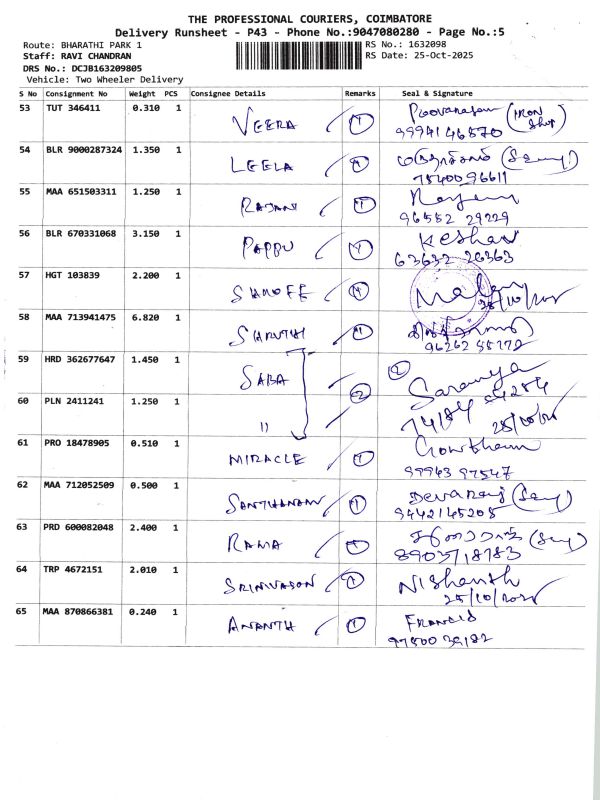 THE PROFESSIONAL COURIERS, COIMBATORE
Delivery Runsheet - P43 - Phone No.:9047080280 - Page No.:5
Route: BHARATHI PARK 1 RS No.: 1632098
Staff: RAVI CHANDRAN RS Date: 25-Oct-2025
DRS No.: DCJB163209805
Vehicle: Two Wheeler Delivery
S No Consignment No Weight PCS Consignee Details Remarks Seal & Signature
53 TUT 346411 0.310 1 VEERA 1 (IRON Shop)
9994146570
54 BLR 9000287324 1.350 1 LEELA 1
7540096611
55 MAA 651503311 1.250 1 RAJANI 1
96552 29229
56 BLR 670331068 3.150 1 PAPPU 1 Keshav
63632 26363
57 HGT 103839 2.200 1 1
58 MAA 713941475 6.820 1 SHRUTHI 1
59 HRD 362677647 1.450 1 SABA 2 Saranya
60 PLN 2411241 1.250 1 "
61 PRO 18478905 0.510 1 MIRACLE 1 Gowtham
99943 97547
62 MAA 712052509 0.500 1 SANTHANAM 1 Devaraj
9442145205
63 PRD 600082048 2.400 1 RAMA 1
8903718783
64 TRP 4672151 2.010 1 SRINIVASON 1 Nishanth
65 MAA 870866381 0.240 1 ANANTH 1 FRANCIS